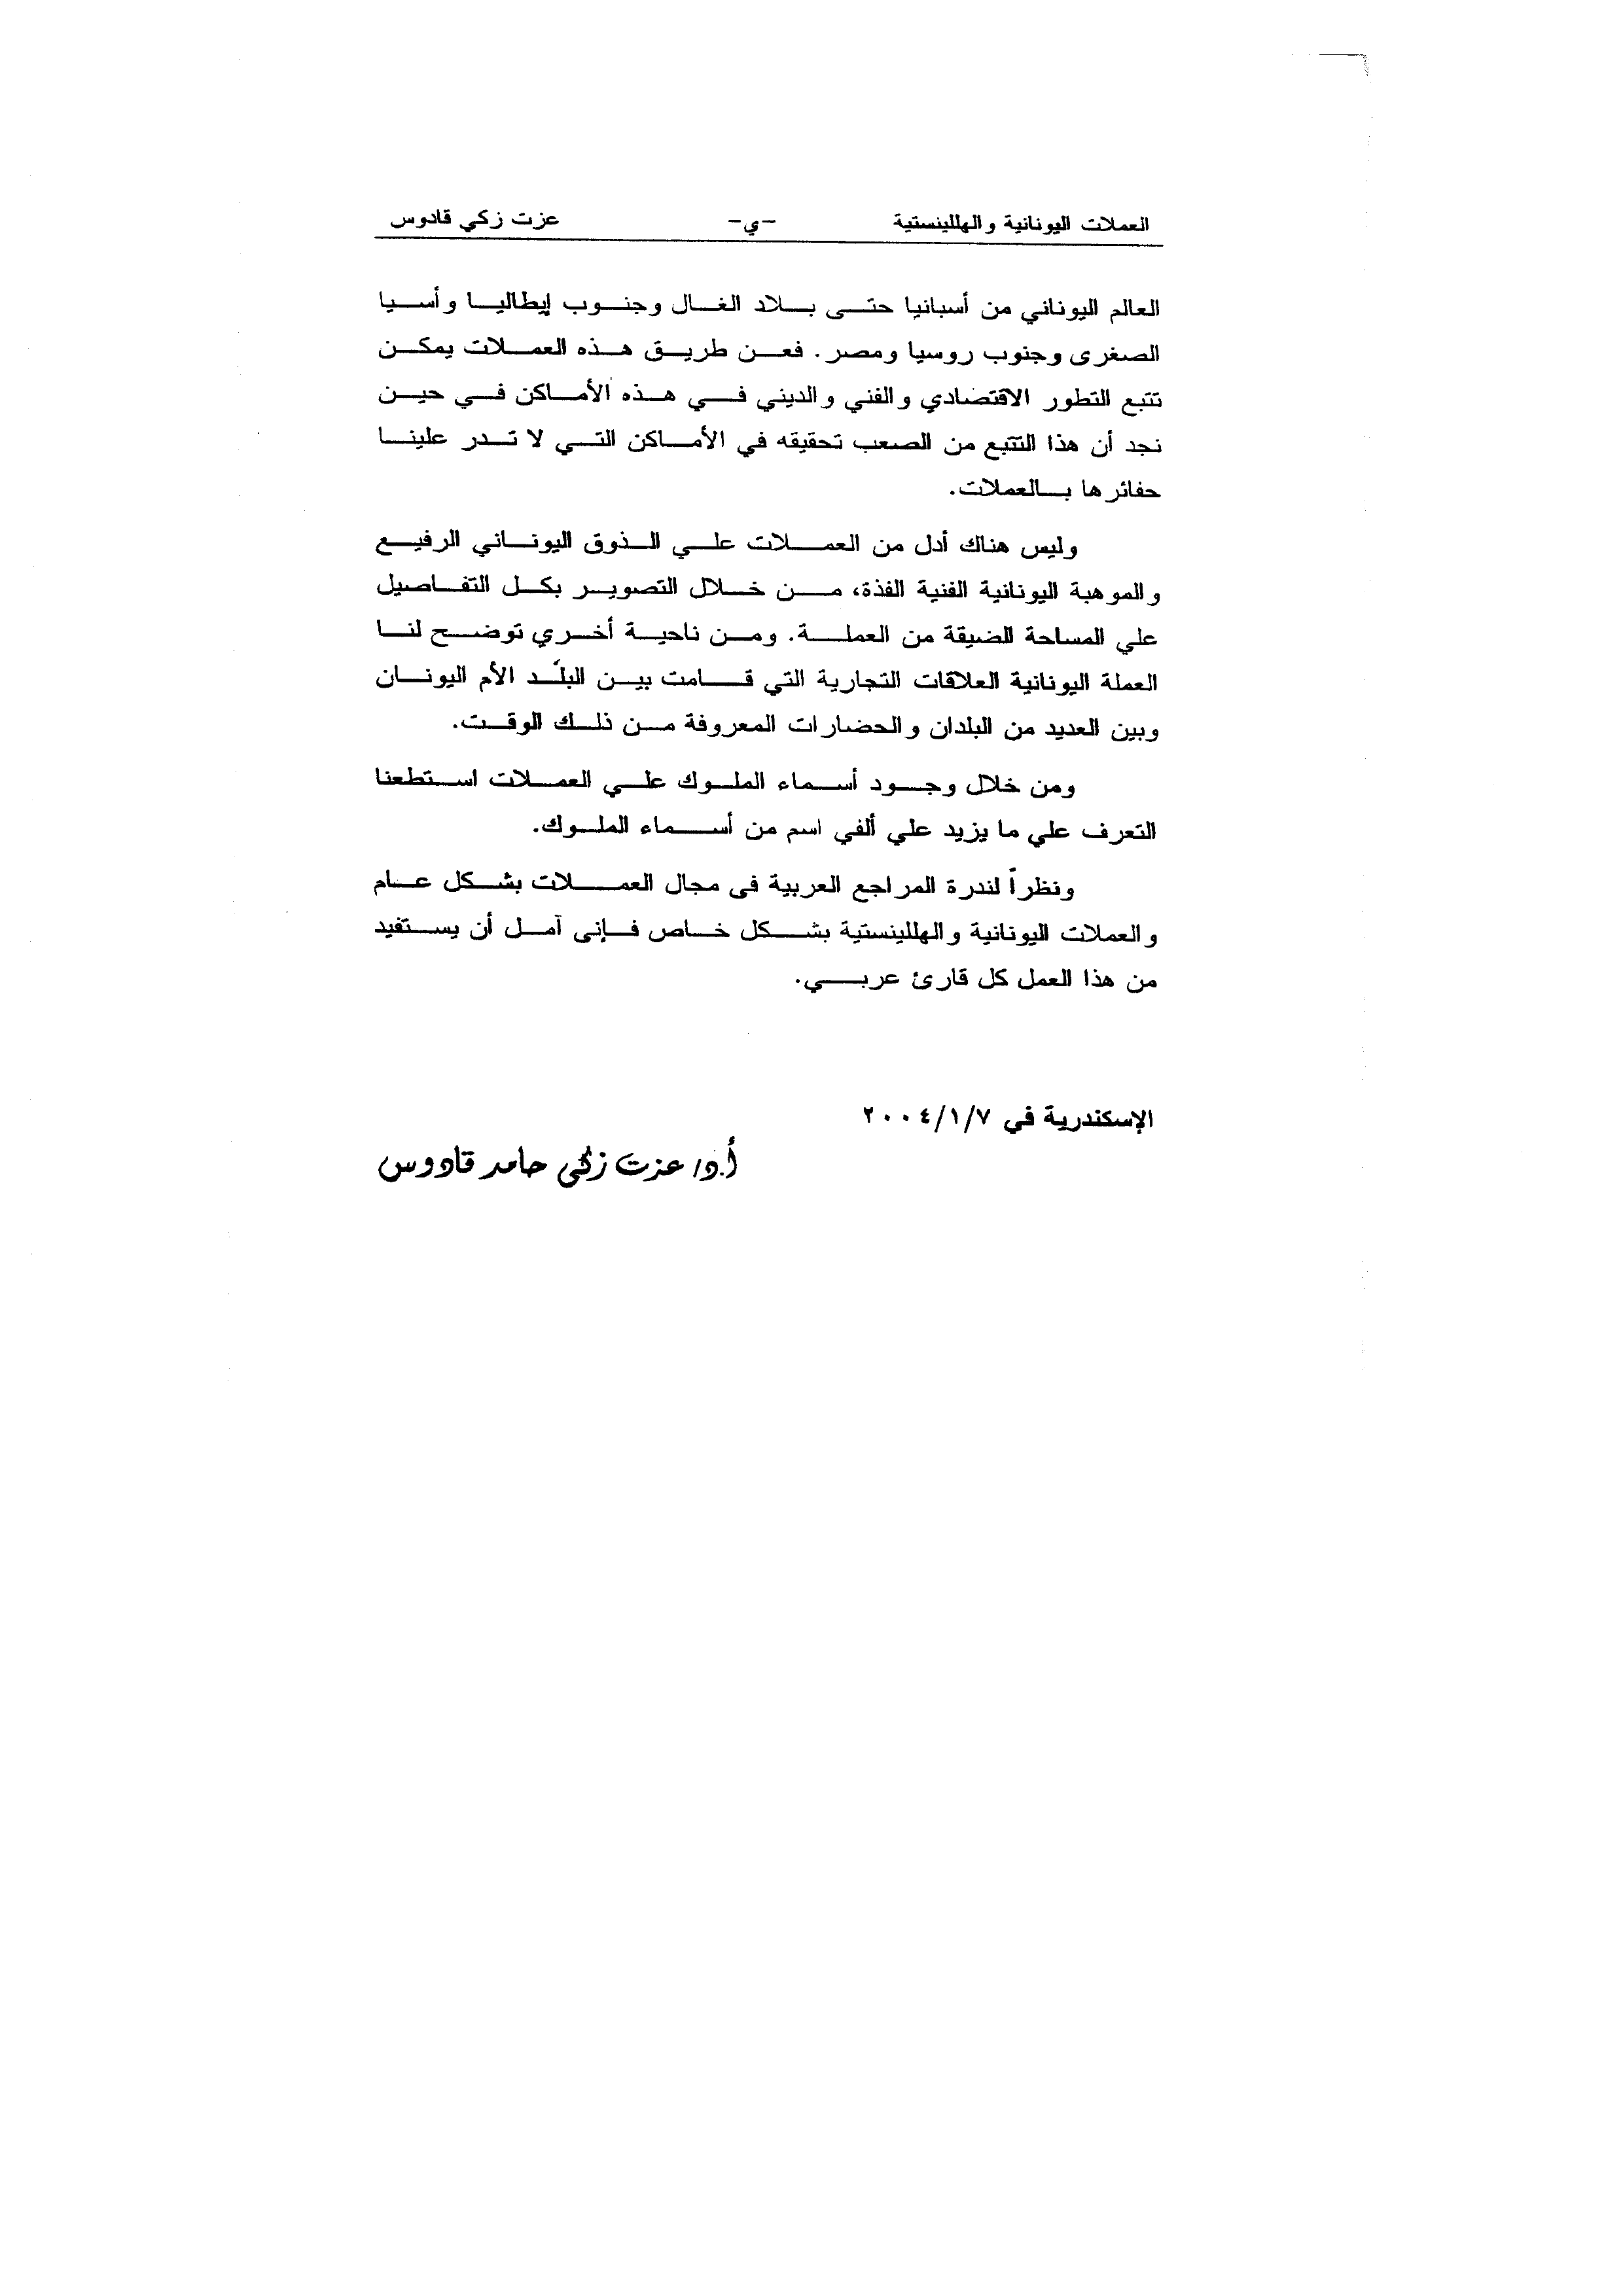 العملات اليونانية والهللينستية -ي- عزت زكي قادوس
العالم اليوناني من أسبانيا حتى بلاد الغال وجنوب إيطاليا وأسيا
الصغرى وجنوب روسيا ومصر. فعن طريق هذه العملات يمكن
تتبع التطور الاقتصادي والفني والديني في هذه الأماكن في حين
نجد أن هذا التتبع من الصعب تحقيقه في الأماكن التي لا تدر علينا
حفائرها بالعملات.
وليس هناك أدل من العملات علي الذوق اليوناني الرفيع
والموهبة اليونانية الفنية الفذة، من خلال التصوير بكل التفاصيل
علي المساحة الضيقة من العملة. ومن ناحية أخري توضح لنا
العملة اليونانية العلاقات التجارية التي قامت بين البلد الأم اليونان
وبين العديد من البلدان والحضارات المعروفة من ذلك الوقت.
ومن خلال وجود أسماء الملوك علي العملات استطعنا
التعرف علي ما يزيد علي ألفي اسم من أسماء الملوك.
ونظراً لندرة المراجع العربية فى مجال العملات بشكل عام
والعملات اليونانية والهللينستية بشكل خاص فإنى آمل أن يستفيد
من هذا العمل كل قارئ عربي.
الإسكندرية في ٢٠٠٤/١/٧
أ.د/ عزت زكي حامد قادوس